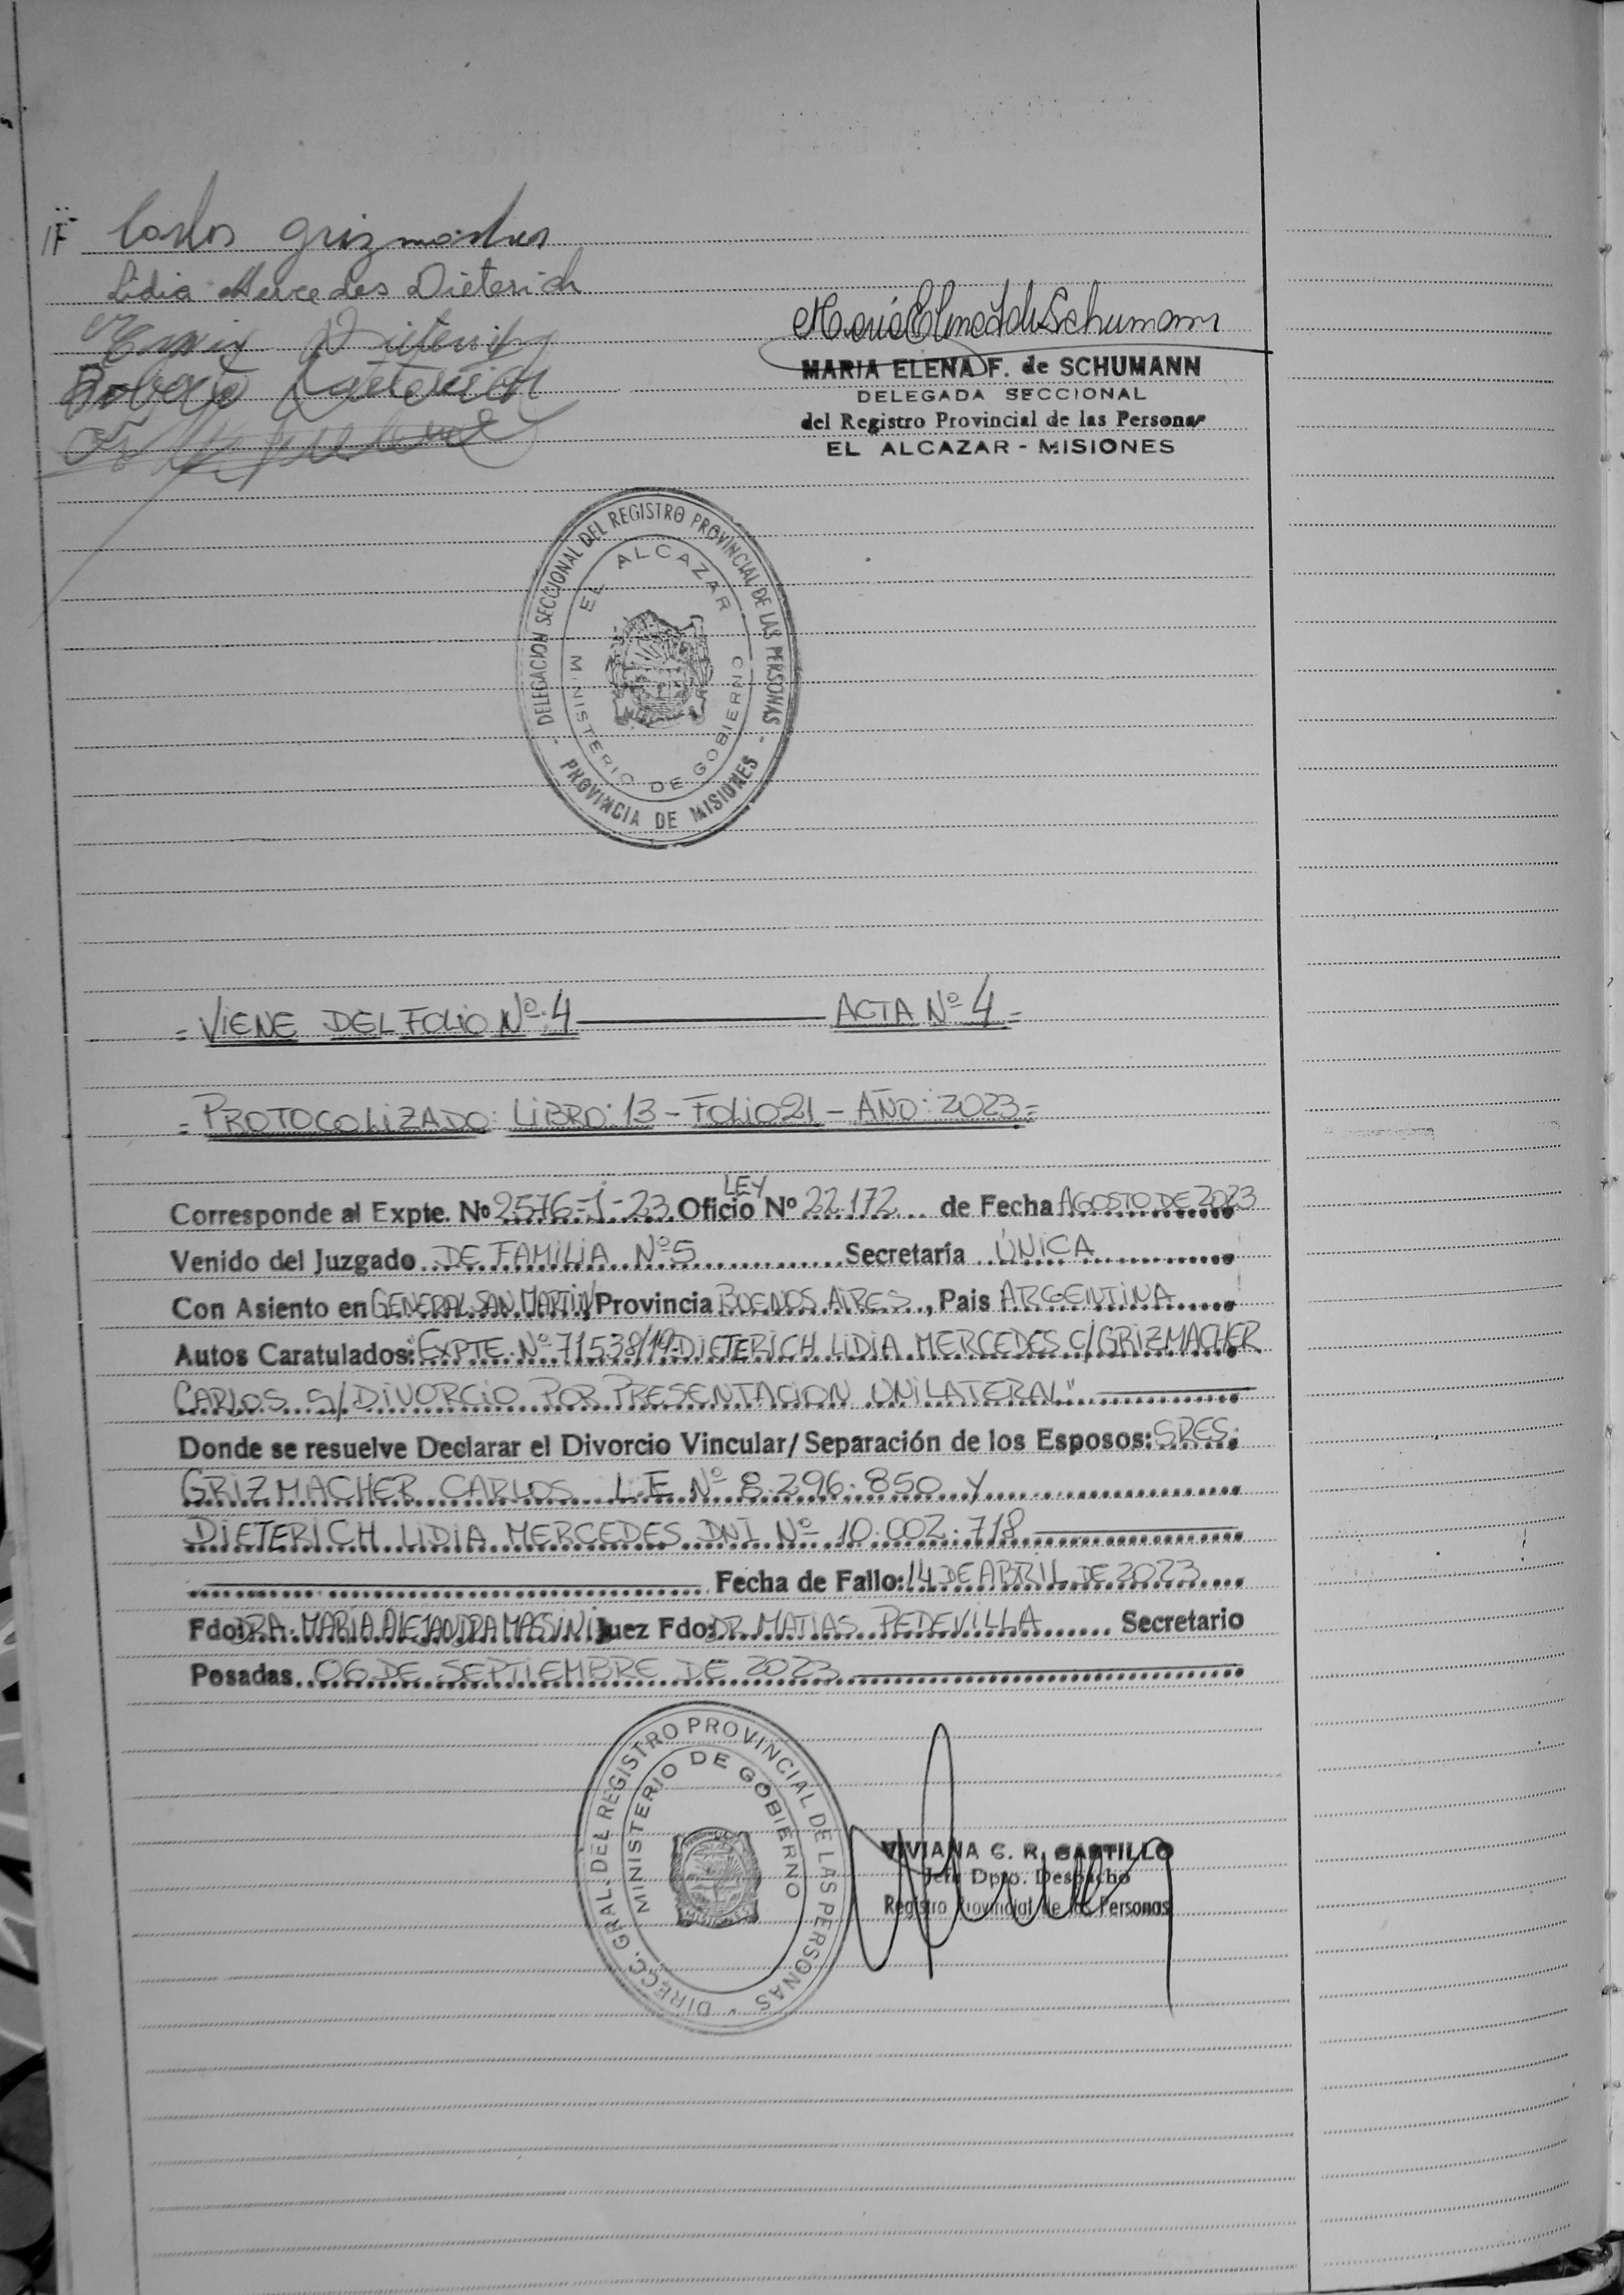 Carlos Grizmacher
Lidia Mercedes Dieterich
Erwin Dieterich
Roberto Dieterich
MARIA ELENA F. de SCHUMANN
DELEGADA SECCIONAL
del Registro Provincial de las Personas
EL ALCAZAR - MISIONES
DELEGACION SECCIONAL DEL REGISTRO PROVINCIAL DE LAS PERSONAS
- PROVINCIA DE MISIONES -
EL ALCAZAR
MINISTERIO DE GOBIERNO
= VIENE DEL FOLIO Nº 4 ——— ACTA Nº 4 =
= PROTOCOLIZADO: LIBRO: 13 - FOLIO 21 - AÑO: 2023 =
LEY
Corresponde al Expte. Nº 2576-J-23 Oficio Nº 22.172 de Fecha AGOSTO DE 2023
Venido del Juzgado DE FAMILIA Nº 5 Secretaría ÚNICA
Con Asiento en GENERAL SAN MARTIN Provincia BUENOS AIRES, Pais ARGENTINA
Autos Caratulados: EXPTE. Nº 71538/19 DIETERICH LIDIA MERCEDES C/ GRIZMACHER
CARLOS S/ DIVORCIO POR PRESENTACION UNILATERAL"
Donde se resuelve Declarar el Divorcio Vincular/Separación de los Esposos: SRES.
GRIZMACHER CARLOS L.E Nº 8.296.850 Y
DIETERICH LIDIA MERCEDES DNI Nº 10.002.718
Fecha de Fallo: 14 DE ABRIL DE 2023
Fdo: DRA. MARÍA ALEJANDRA MASSINI Juez Fdo: DR. MATIAS PEDEVILLA Secretario
Posadas 06 DE SEPTIEMBRE DE 2023
DIRECC. GRAL. DEL REGISTRO PROVINCIAL DE LAS PERSONAS
MINISTERIO DE GOBIERNO
VIVIANA G. R. CASTILLO
Jefa Dpto. Despacho
Registro Provincial de las Personas